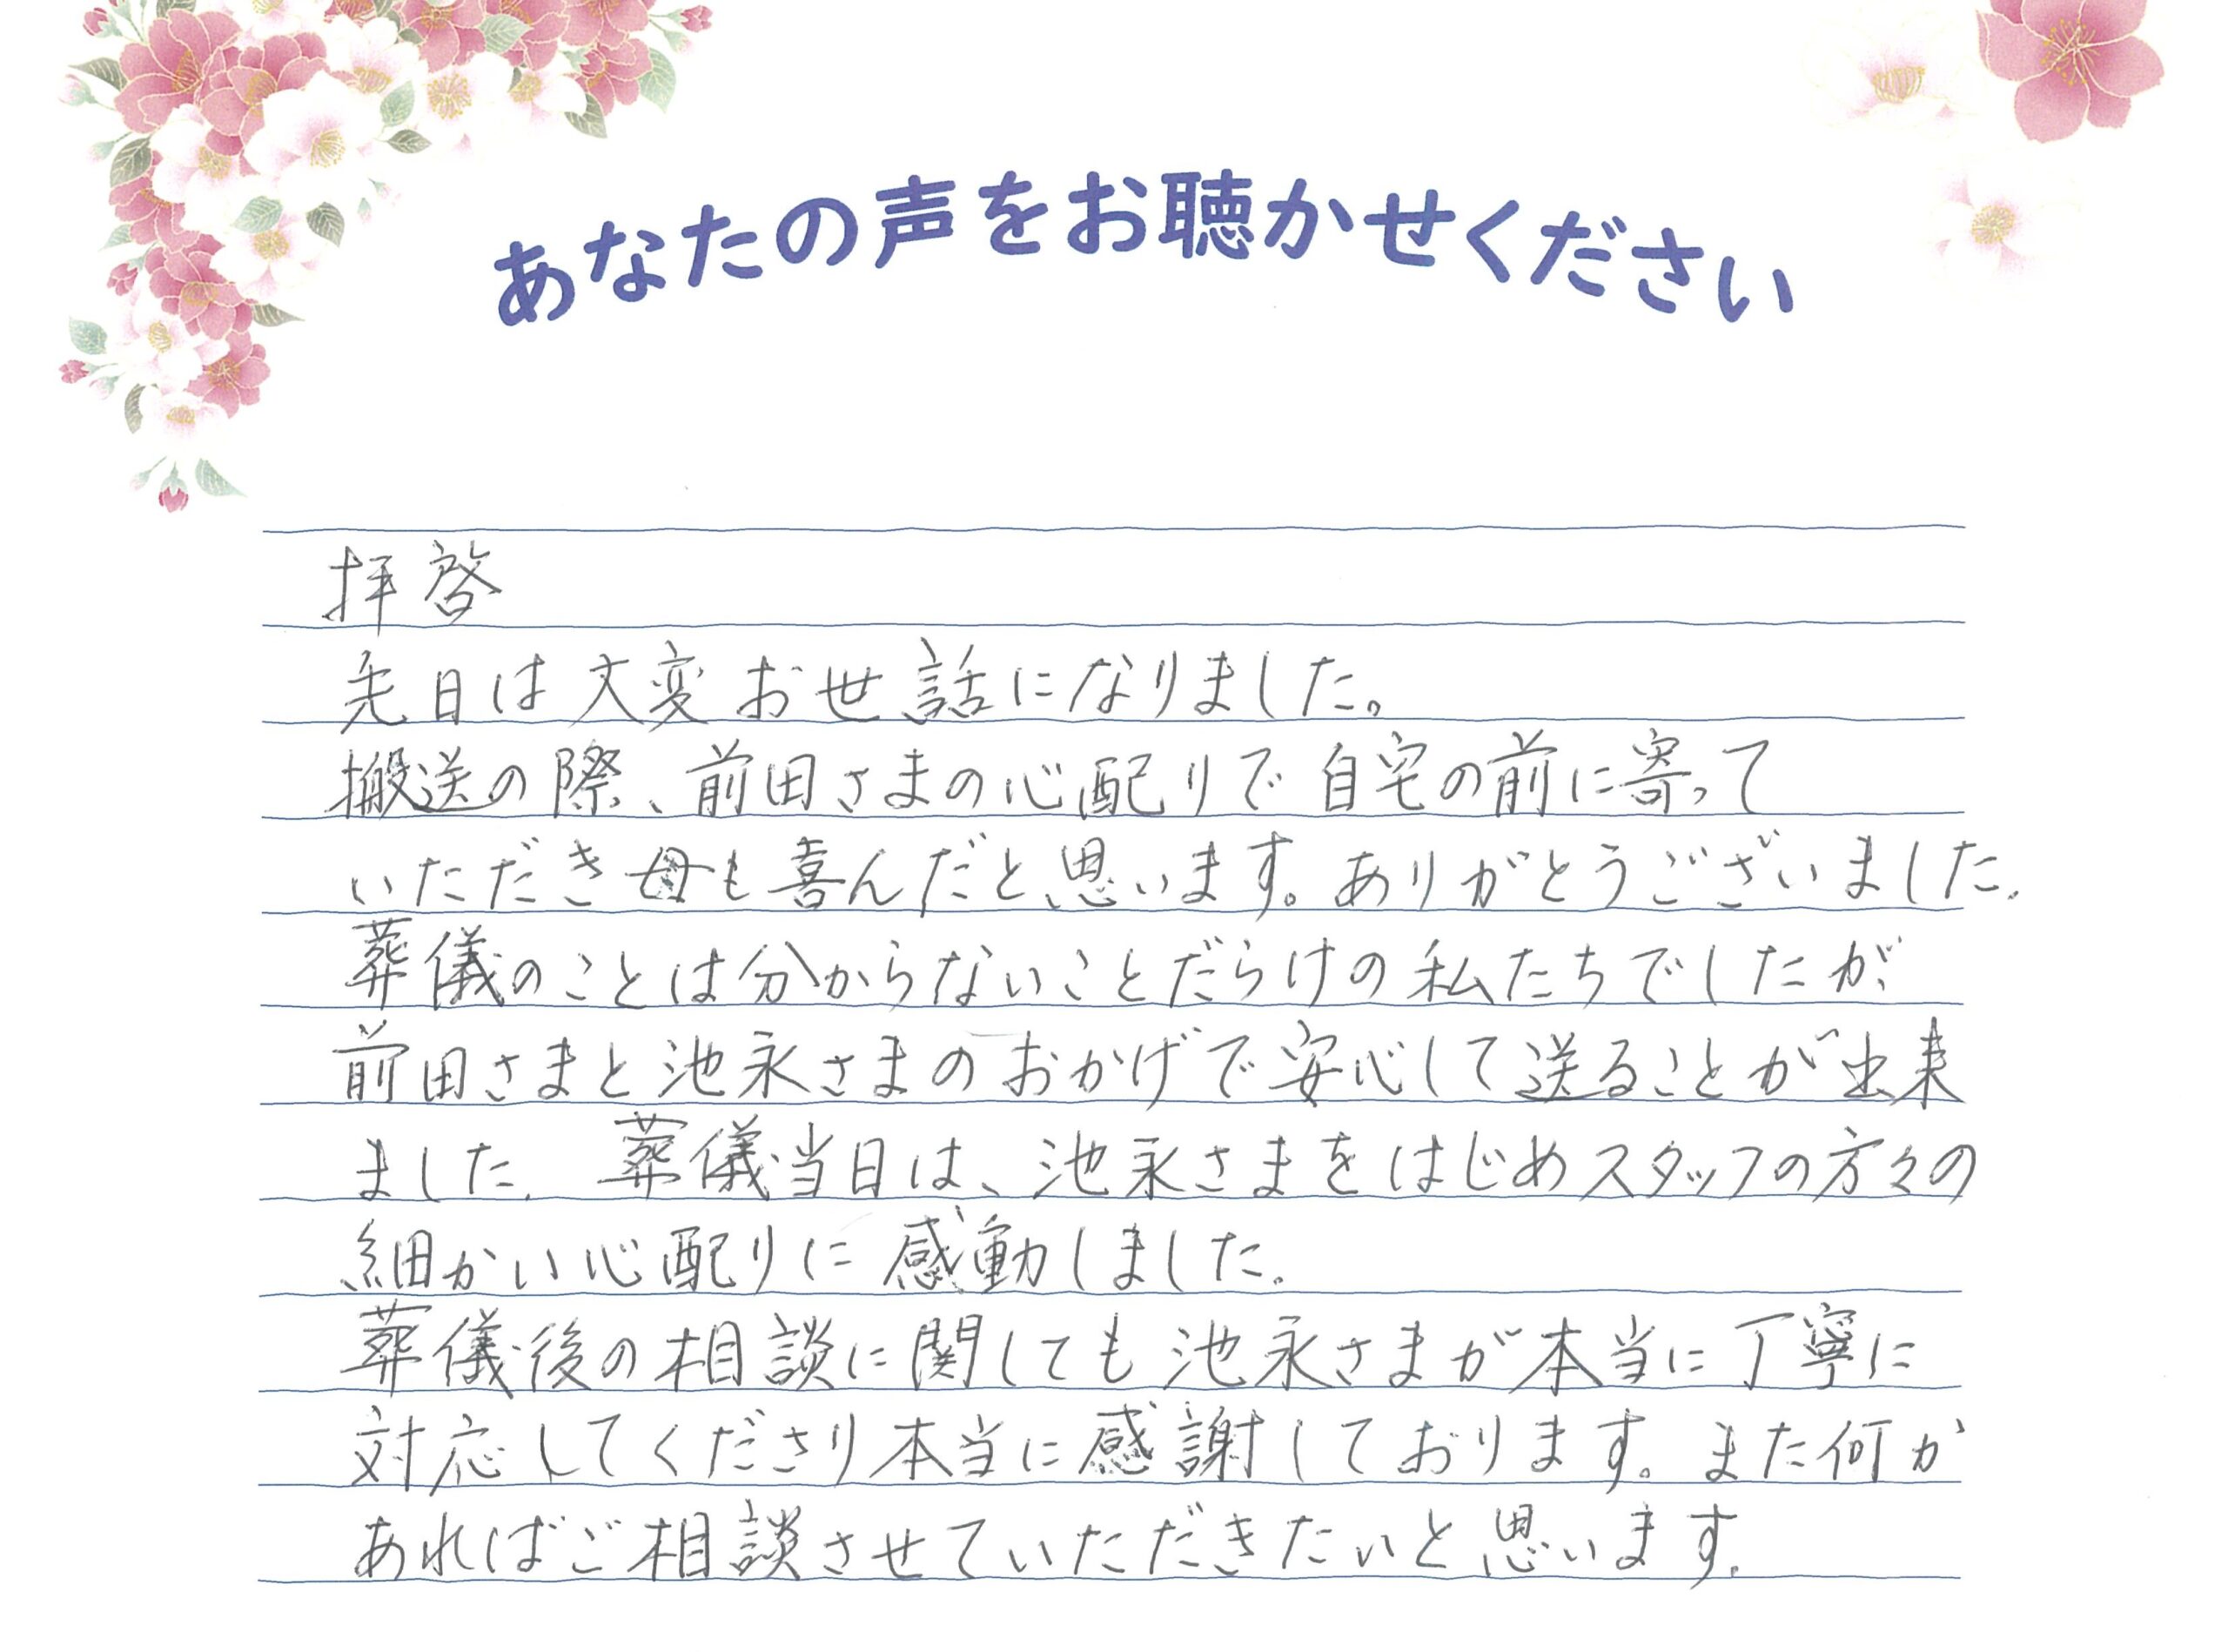 あなたの声をお聴かせください
拝啓
先日は大変お世話になりました。
搬送の際、前田さまの心配りで自宅の前に寄って
いただき母も喜んだと思います。ありがとうございました。
葬儀のことは分からないことだらけの私たちでしたが、
前田さまと池永さまのおかげで安心して送ることが出来
ました。葬儀当日は、池永さまをはじめスタッフの方々の
細かい心配りに感動しました。
葬儀後の相談に関しても池永さまが本当に丁寧に
対応してくださり本当に感謝しております。また何か
あればご相談させていただきたいと思います。